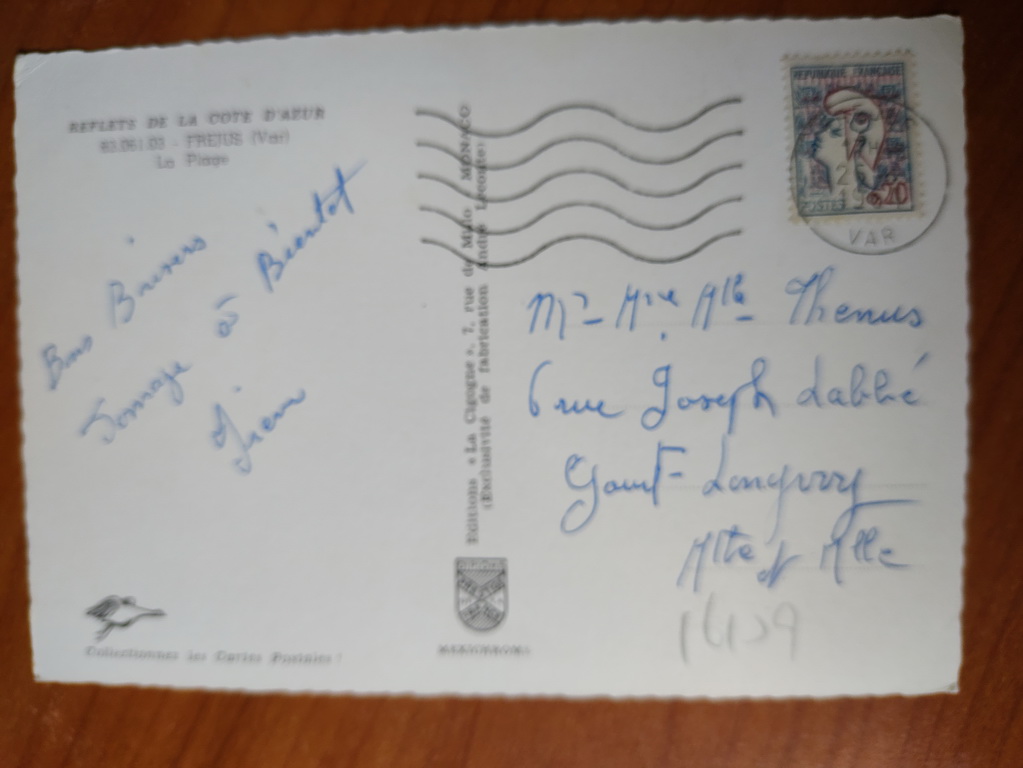 REFLETS DE LA COTE D'AZUR
83.061.03 - FREJUS (Var)
La Plage
Bons Baisers
à Bientot
Editions « La Cigogne », 7, rue de Millo, MONACO
(Exclusivité de fabrication André Leconte)
Collectionnez les Cartes Postales !
MEXICHROME
REPUBLIQUE FRANÇAISE
POSTES
0,20
VAR
Mr Mme Mlle Thenus
6 rue Joseph Labbé
Gouraf - Longwy
Mthe et Mlle